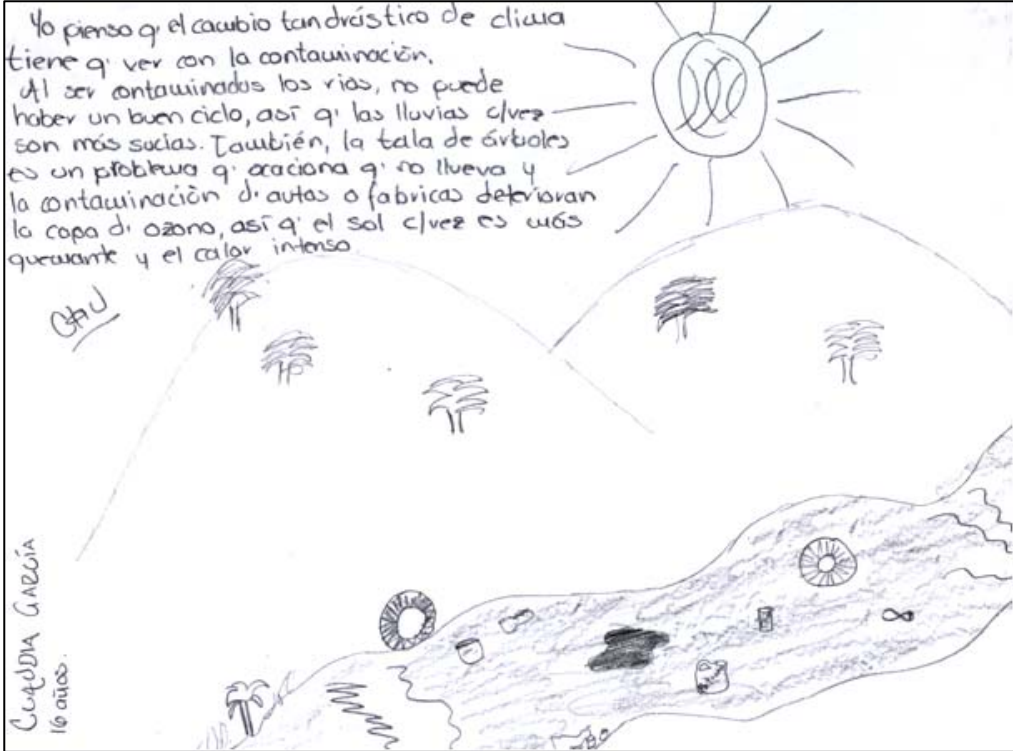 Yo pienso q' el cambio tan drástico de clima
tiene q' ver con la contaminación.
Al ser contaminados los rios, no puede
haber un buen ciclo, así q' las lluvias c/vez
son más sucias. También, la tala de árboles
es un problema q' ocaciona q' no llueva y
la contaminación d' autos o fabricas deterioran
la capa d' ozono, así q' el sol c/vez es más
quemante y el calor intenso.
CLAUDIA GARCÍA
16 años.